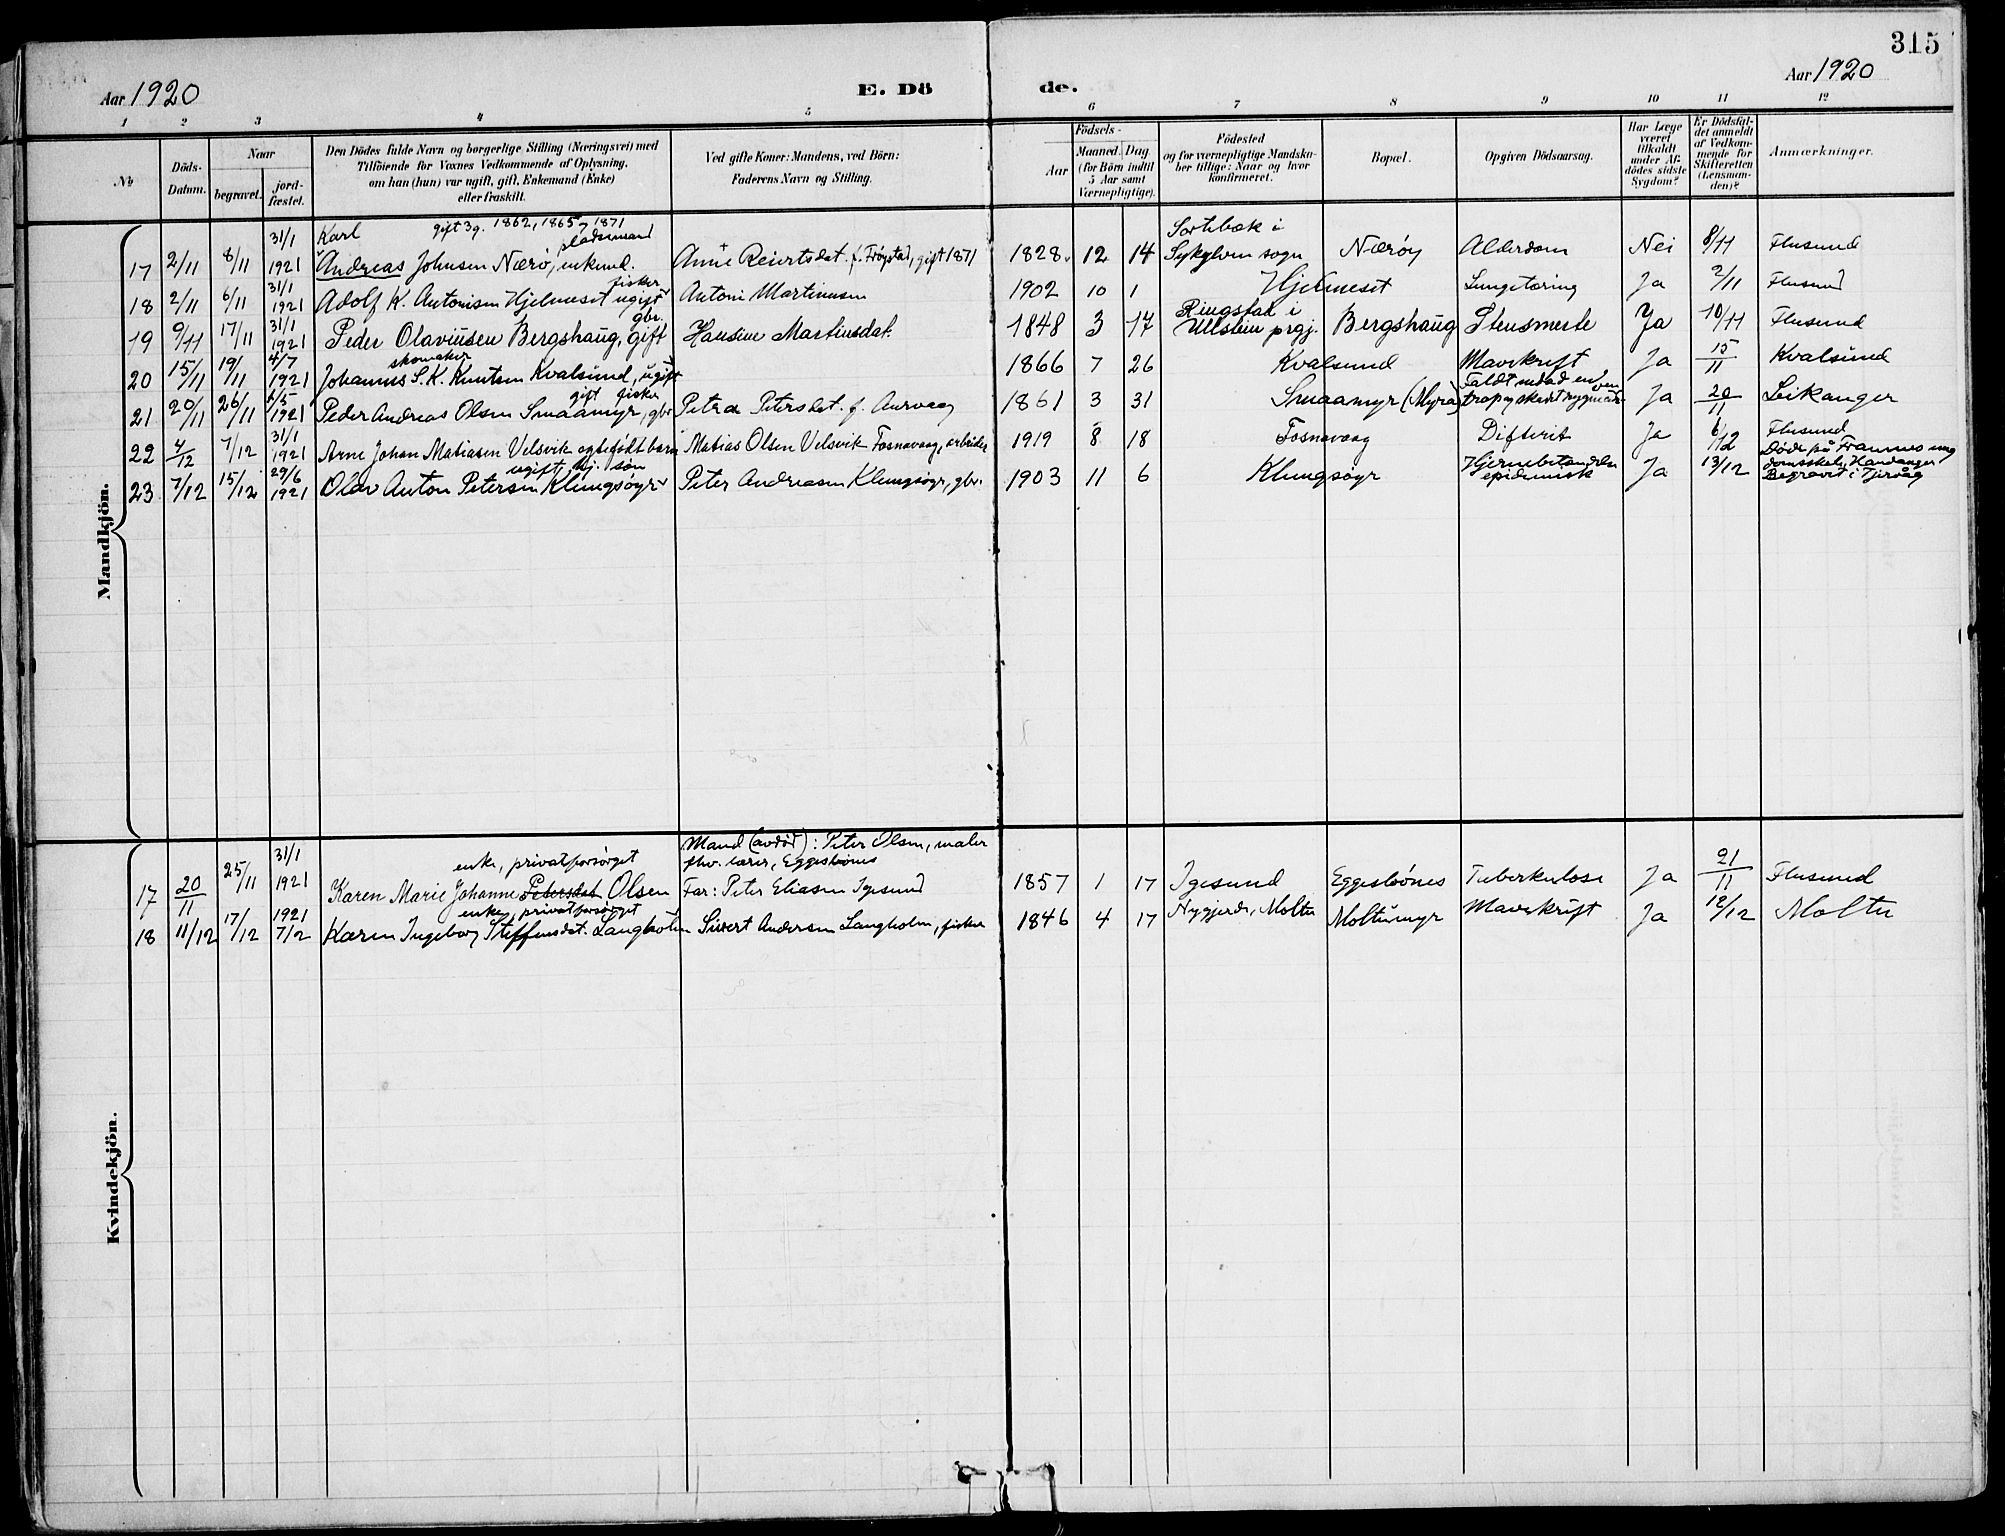 315
Aar 1920
E. Dö
de.
Aar 1920
1 2 3 4 5 6 7 8 9 10 11 12
No
Döds-Datum.
Naar
begravet.
jord-fæstet.
Den Dödes fulde Navn og borgerlige Stilling (Næringsvei) med
Tilföiende for Voxnes Vedkommende af Oplysning,
om han (hun) var ugift, gift, Enkemand (Enke)
eller fraskilt.
Ved gifte Koner: Mandens, ved Börn:
Faderens Navn og Stilling.
Födsels-
Aar
Maaned Dag
(for Börn indtil
5 Aar samt
Værnepligtige).
Födested
og for værnepligtige Mandska-
ber tillige: Naar og hvor
konfirmeret.
Bopæl.
Opgiven Dödsaarsag.
Har Læge
været
tilkaldt
under Af-
dödes sidste
Sygdom?
Er Dödsfal-
det anmeldt
af Vedkom-
mende for
Skifteretten
(Lensman-
den)?
Anmærkninger.
Mandkjön.
Karl gift 3 g. 1862, 1865, 1871
pladsmand
17 2/11 8/11 31/1 1921 Andreas Johnsen Nærøy, enkemd. Anne Reiertsdat. f. Frøystad, gift 1871 1828 12 14 Sortebæk i Sykylven sogn Nærøy Alderdom Nei 8/11 Flusund
fisker
18 2/11 6/11 31/1 1921 Adolf K. Antonisen Hjelmeset ugift Antoni Martinusen 1902 10 1 Hjelmeset Lungetæring Ja 2/11 Flusund
gbr.
19 9/11 17/11 31/1 1921 Peder Olaviusen Bergshaug, gift Hansine Martinsdat. 1848 3 17 Ringstad i Ulstein prgj. Bergshaug Stensmerte Ja 10/11 Flusund
skomaker
20 15/11 19/11 4/7 1921 Johannes S. K. Knutsen Kvalsund, ugift 1866 7 26 Kvalsund Mavekræft Ja 15/11 Kvalsund
gift fisker
21 20/11 26/11 2/5 1921 Peder Andreas Olsen Smaamyr, gbr. Petra Petersdat. f. Aurvaag 1861 3 31 Smaamyr (Myra) Faldt nedad en trap og skadet Ja 20/11 Leikanger
22 4/12 7/12 31/1 1921 Arne Johan Matiasen Velsvik egtefødt barn Matias Olsen Velsvik Fosnavaag, arbeider 1919 8 18 Fosnavaag Difterit Ja 6/12 Flusund
ugift, hj. søn
23 7/12 15/12 29/6 1921 Olav Anton Petersen Klungsøyr Peter Andreasen Klungsøyr, gbr. 1903 11 6 Klungsøyr Hjernebetændelse epidemisk Ja 13/12 Døde på Framnes ung
domsskole, Hardanger
Begravet i Tjørvåg
Kvindekjön.
Mand (avdød): Peter Olsen, maler
enke, privat forsørget fhv. lærer, Eggesbønes
17 20/11 25/11 31/1 1921 Karen Marie Johanne Petersdat Olsen Far: Peter Eliasen Igesund 1857 1 17 Igesund Eggesbønes Tuberkulose Ja 21/11 Flusund
enke, privat forsørget
18 11/12 17/12 1921 7/2 Karen Ingeborg Steffensdat. Langholm Sivert Andersen Langholm, fisker 1846 4 17 Nygjerde, Moltu Moltumyr Mavekræft Ja 12/12 Moltu